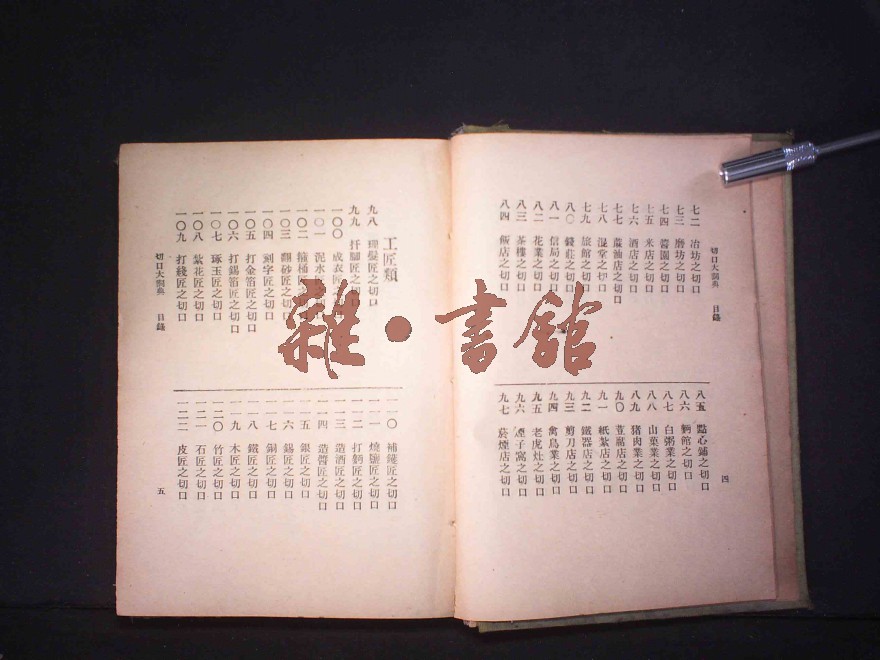 切口大詞典 目錄
七二 冶坊之切口
七三 磨坊之切口
七四 醬園之切口
七五 米店之切口
七六 酒店之切口
七七 蔴油店之切口
七八 混堂之切口
七九 旅館之切口
八〇 錢莊之切口
八一 信局之切口
八二 花業之切口
八三 茶樓之切口
八四 飯店之切口
八五 點心鋪之切口
八六 麪館之切口
八七 白粥業之切口
八八 山菓業之切口
八九 猪肉業之切口
九〇 荳腐店之切口
九一 紙紮店之切口
九二 鐵器店之切口
九三 剪刀店之切口
九四 禽鳥業之切口
九五 老虎灶之切口
九六 煙子窩之切口
九七 菸煙店之切口
四
工匠類
九八 理髮匠之切口
九九 扦腳匠之切口
一〇〇 成衣匠之切口
一〇一 泥水匠之切口
一〇二 箍桶匠之切口
一〇三 翻砂匠之切口
一〇四 刻字匠之切口
一〇五 打金箔匠之切口
一〇六 打錫箔匠之切口
一〇七 琢玉匠之切口
一〇八 紮花匠之切口
一〇九 打綫匠之切口
切口大詞典 目錄
一一〇 補鑊匠之切口
一一一 燒鹽匠之切口
一一二 打麪匠之切口
一一三 造酒匠之切口
一一四 造醬匠之切口
一一五 銀匠之切口
一一六 錫匠之切口
一一七 銅匠之切口
一一八 鐵匠之切口
一一九 木匠之切口
一二〇 竹匠之切口
一二一 石匠之切口
一二二 皮匠之切口
五
雜·書館